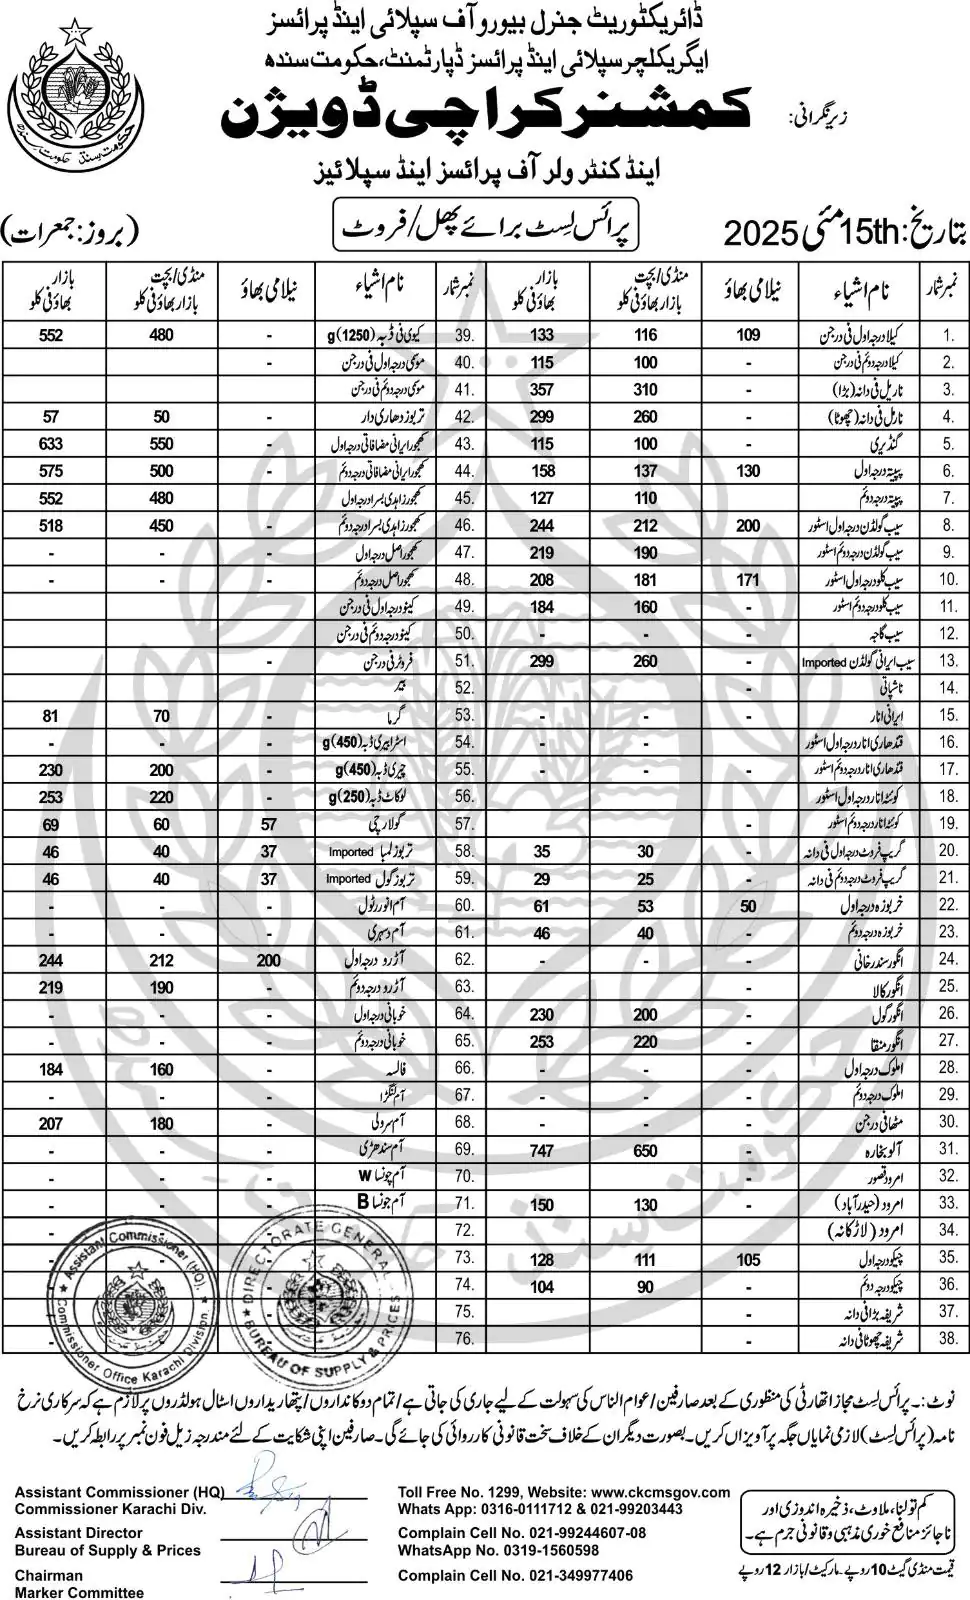 ڈائریکٹوریٹ جنرل بیورو آف سپلائی اینڈ پرائسز
ایگریکلچر سپلائی اینڈ پرائسز ڈپارٹمنٹ، حکومت سندھ
زیر نگرانی: کمشنر کراچی ڈویژن
اینڈ کنٹرولر آف پرائسز اینڈ سپلائیز
بتاریخ: 15th مئی 2025 پرائس لسٹ برائے پھل/فروٹ (بروز: جمعرات)
نمبر شمار نام اشیاء نیلامی بھاؤ منڈی/بچت بازار بھاؤ فی کلو بازار بھاؤ فی کلو نمبر شمار نام اشیاء نیلامی بھاؤ منڈی/بچت بازار بھاؤ فی کلو بازار بھاؤ فی کلو
1. کیلا درجہ اول فی درجن 109 116 133 39. کیوی فی ڈبہ (1250)g - 480 552
2. کیلا درجہ دوئم فی درجن - 100 115 40. موسمی درجہ اول فی درجن -
3. ناریل فی دانہ (بڑا) - 310 357 41. موسمی درجہ دوئم فی درجن
4. ناریل فی دانہ (چھوٹا) - 260 299 42. تربوز دھاری دار - 50 57
5. گنڈیری - 100 115 43. کھجور ایرانی مضافاتی درجہ اول - 550 633
6. پپیتہ درجہ اول 130 137 158 44. کھجور ایرانی مضافاتی درجہ دوئم - 500 575
7. پپیتہ درجہ دوئم - 110 127 45. کھجور زاہدی بسرا درجہ اول - 480 552
8. سیب گولڈن درجہ اول اسٹور 200 212 244 46. کھجور زاہدی بسرا درجہ دوئم - 450 518
9. سیب گولڈن درجہ دوئم اسٹور - 190 219 47. کھجور اصل درجہ اول - - -
10. سیب کلو درجہ اول اسٹور 171 181 208 48. کھجور اصل درجہ دوئم - - -
11. سیب کلو درجہ دوئم اسٹور - 160 184 49. کینو درجہ اول فی درجن -
12. سیب گاجہ - - - 50. کینو درجہ دوئم فی درجن -
13. سیب ایرانی گولڈن Imported - 260 299 51. فروٹر فی درجن -
14. ناشپاتی - 52. بیر
15. ایرانی انار - - - 53. گرما - 70 81
16. قندھاری انار درجہ اول اسٹور - - - 54. اسٹرابیری ڈبہ (450)g - - -
17. قندھاری انار درجہ دوئم اسٹور - - - 55. چیری ڈبہ (450)g - 200 230
18. کوئٹہ انار درجہ اول اسٹور - 56. لوکاٹ ڈبہ (250)g - 220 253
19. کوئٹہ انار درجہ دوئم اسٹور - 57. گولارچی 57 60 69
20. گریپ فروٹ درجہ اول فی دانہ - 30 35 58. تربوز لمبا Imported 37 40 46
21. گریپ فروٹ درجہ دوئم فی دانہ - 25 29 59. تربوز گول Imported 37 40 46
22. خربوزہ درجہ اول 50 53 61 60. آم انور رٹول - - -
23. خربوزہ درجہ دوئم - 40 46 61. آم دسہری - - -
24. انگور سندرخانی - - - 62. آڑو درجہ اول 200 212 244
25. انگور کالا - 63. آڑو درجہ دوئم - 190 219
26. انگور گول - 200 230 64. خوبانی درجہ اول - - -
27. انگور منقا - 220 253 65. خوبانی درجہ دوئم - - -
28. املوک درجہ اول - - - 66. فالسہ - 160 184
29. املوک درجہ دوئم - - - 67. آم لنگڑا - - -
30. مٹھا فی درجن - - - 68. آم سرولی - 180 207
31. آلو بخارہ - 650 747 69. آم سندھڑی - - -
32. امرود قصور - 70. آم چونسا W - - -
33. امرود (حیدرآباد) - 130 150 71. آم چونسا B - - -
34. امرود (لاڑکانہ) 72. - -
35. چیکو درجہ اول 105 111 128 73. - -
36. چیکو درجہ دوئم - 90 104 74. -
37. شریفہ بڑا فی دانہ - 75. -
38. شریفہ چھوٹا فی دانہ - 76. - -
Assistant Commissioner (HQ)
Commissioner Office Karachi Division
DIRECTORATE GENERAL
BUREAU OF SUPPLY & PRICES
نوٹ:۔ پرائس لسٹ مجاز اتھارٹی کی منظوری کے بعد صارفین/عوام الناس کی سہولت کے لیے جاری کی جاتی ہے/تمام دوکانداروں/پتھاریداروں اسٹال ہولڈروں پر لازم ہے کہ سرکاری نرخ
نامہ (پرائس لسٹ) لازمی نمایاں جگہ پر آویزاں کریں۔ بصورت دیگر ان کے خلاف سخت قانونی کارروائی کی جائے گی۔ صارفین اپنی شکایت کے لئے مندرجہ زیل فون نمبر پر رابطہ کریں۔
Assistant Commissioner (HQ)
Commissioner Karachi Div.
Assistant Director
Bureau of Supply & Prices
Chairman
Marker Committee
Toll Free No. 1299, Website: www.ckcmsgov.com
Whats App: 0316-0111712 & 021-99203443
Complain Cell No. 021-99244607-08
WhatsApp No. 0319-1560598
Complain Cell No. 021-349977406
کم تولنا، ملاوٹ، ذخیرہ اندوزی اور
ناجائز منافع خوری مذہبی و قانونی جرم ہے۔
قیمت منڈی گیٹ 10 روپے۔ مارکیٹ/بازار 12 روپے